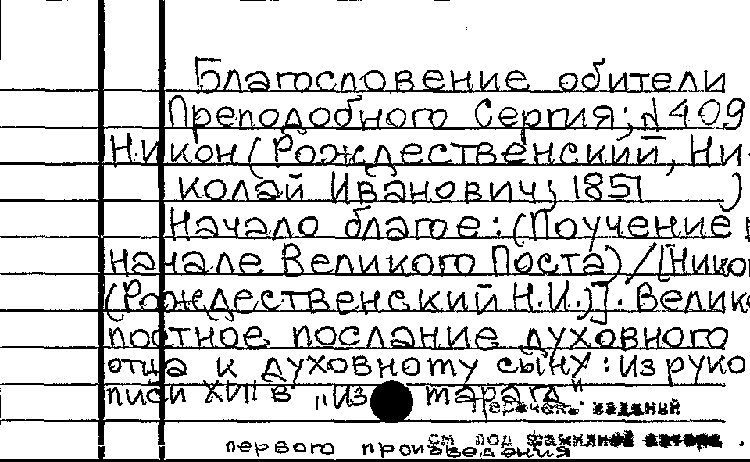 Благословение обители
Преподобного Сергия; N 409
Никон (Рождественский, Ни-
колай Иванович; 1851 )
Начало благое: (Поучение в
начале Великого Поста) / [Нико
(Рождественский Н.И.)]. Велико
постное послание духовного
отца к духовному сыну: из руко
писи XVII в „Из тарага"
Перечень изданий
см. под
первого произведения